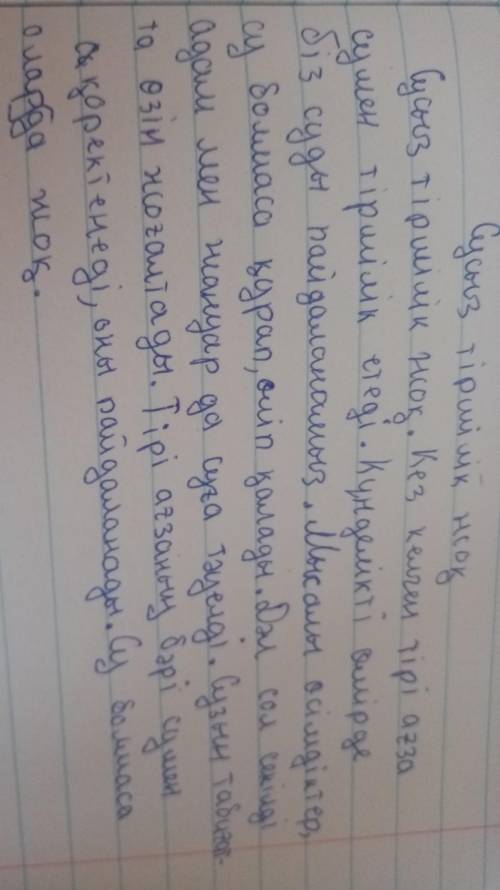 Сусыз тіршілік жоқ
Сусыз тіршілік жоқ. Кез келген тірі ағза
сумен тіршілік етеді. Күнделікті өмірде
біз суды пайдаланамыз. Мысалы өсімдіктер,
су болмаса қурап, өліп қалады. Дәл сол секілді
адам мен жануар да суға тәуелді. Сузын табиғат-
та өзін жоғалтады. Тірі ағзаның бәрі сумен
қоректенеді, оны пайдаланады. Су болмаса
оларда жоқ.